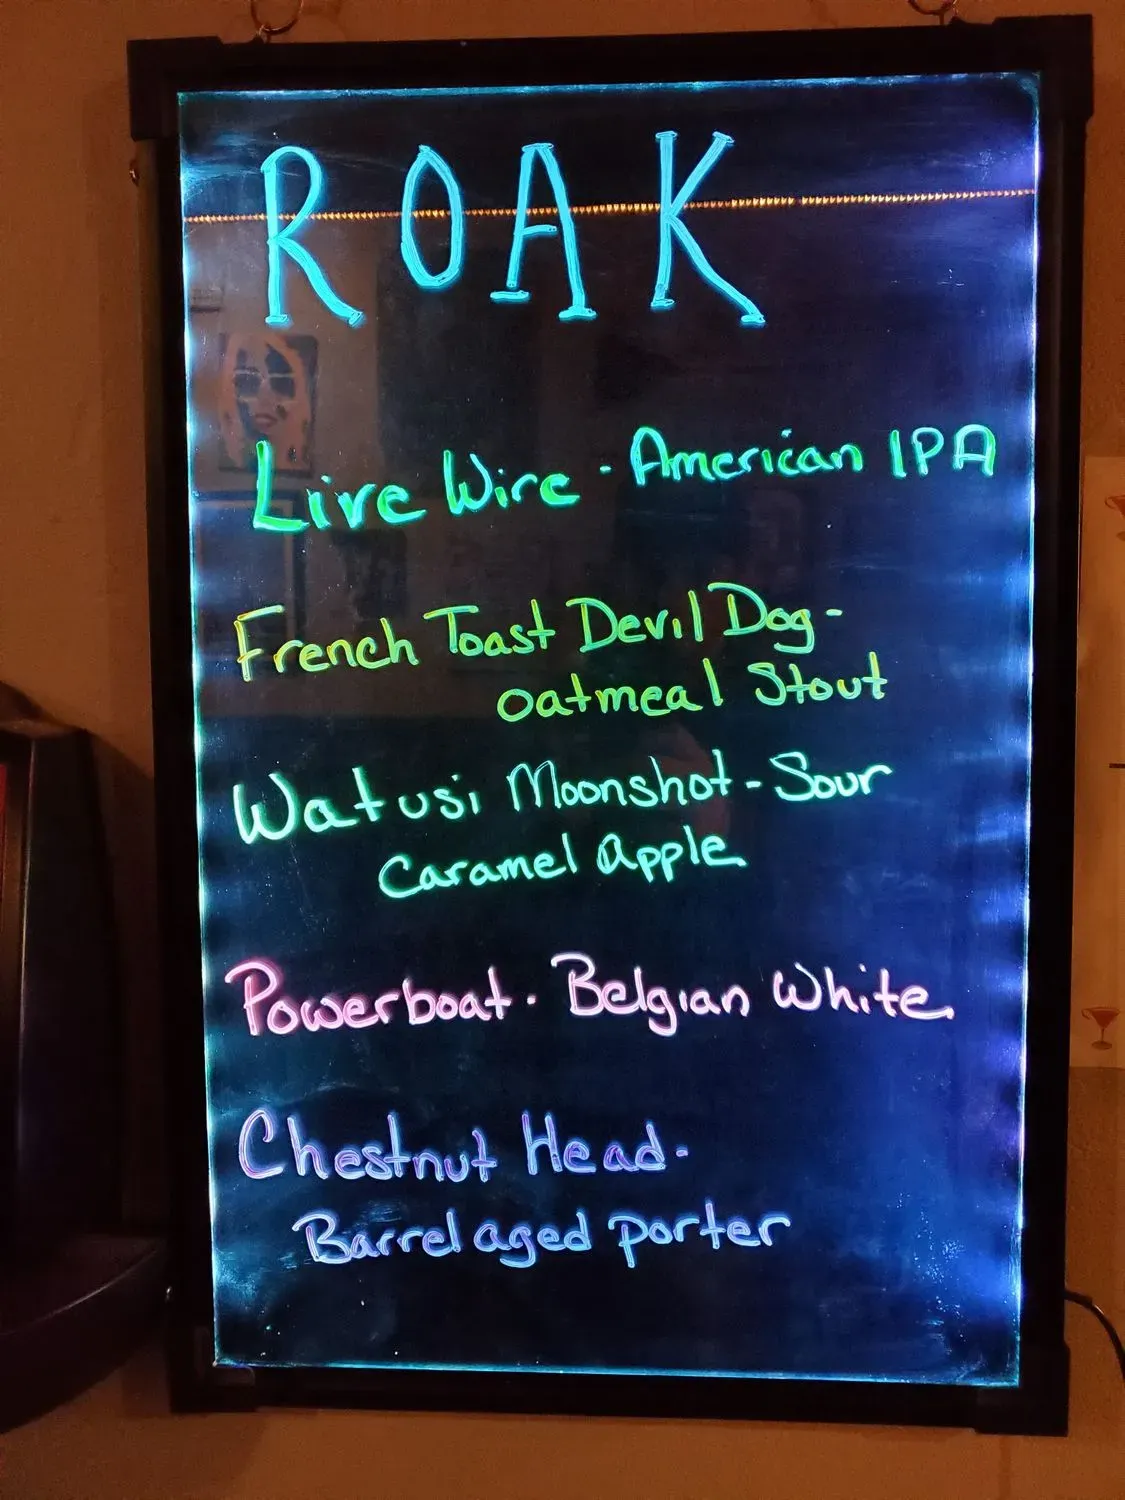 ROAK
Live Wire - American IPA
French Toast Devil Dog -
oatmeal Stout
Watusi Moonshot - Sour
Caramel Apple
Powerboat - Belgian White
Chestnut Head -
Barrel aged porter